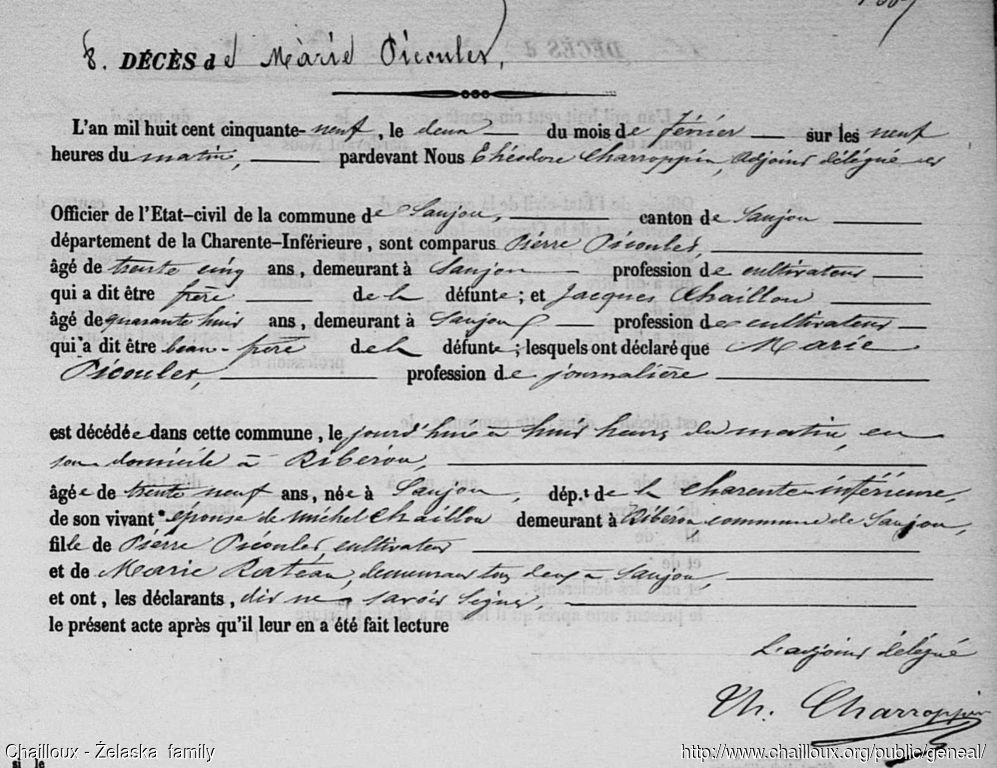 8. DÉCÈS de Marie Picoulet,
L'an mil huit cent cinquante-neuf, le deux du mois de février sur les neuf
heures du matin, pardevant Nous Théodore Charroppin, adjoint délégué
Officier de l'Etat-civil de la commune de Saujon, canton de Saujon
département de la Charente-Inférieure, sont comparus Pierre Picoulet,
âgé de trente cinq ans, demeurant à Saujon profession de cultivateur
qui a dit être frère de la défunte; et Jacques Chaillou
âgé de quarante huit ans, demeurant à Saujon profession de cultivateur
qui a dit être beau-frère de la défunte; lesquels ont déclaré que Marie
Picoulet, profession de journalière
est décédée dans cette commune, le jourd'hui à huit heures du matin, en
son domicile à Ribérou,
âgée de trente neuf ans, née à Saujon, dép.t de la Charente-inférieure,
de son vivant épouse de Michel Chaillou demeurant à Ribérou commune de Saujon,
fille de Pierre Picoulet, cultivateur
et de Marie Rateau, demeurant tous deux à Saujon,
et ont, les déclarants, dit ne savoir signer,
le présent acte après qu'il leur en a été fait lecture
L'adjoint délégué
Th. Charroppin
Chailloux - Żelaska family
http://www.chailloux.org/public/geneal/